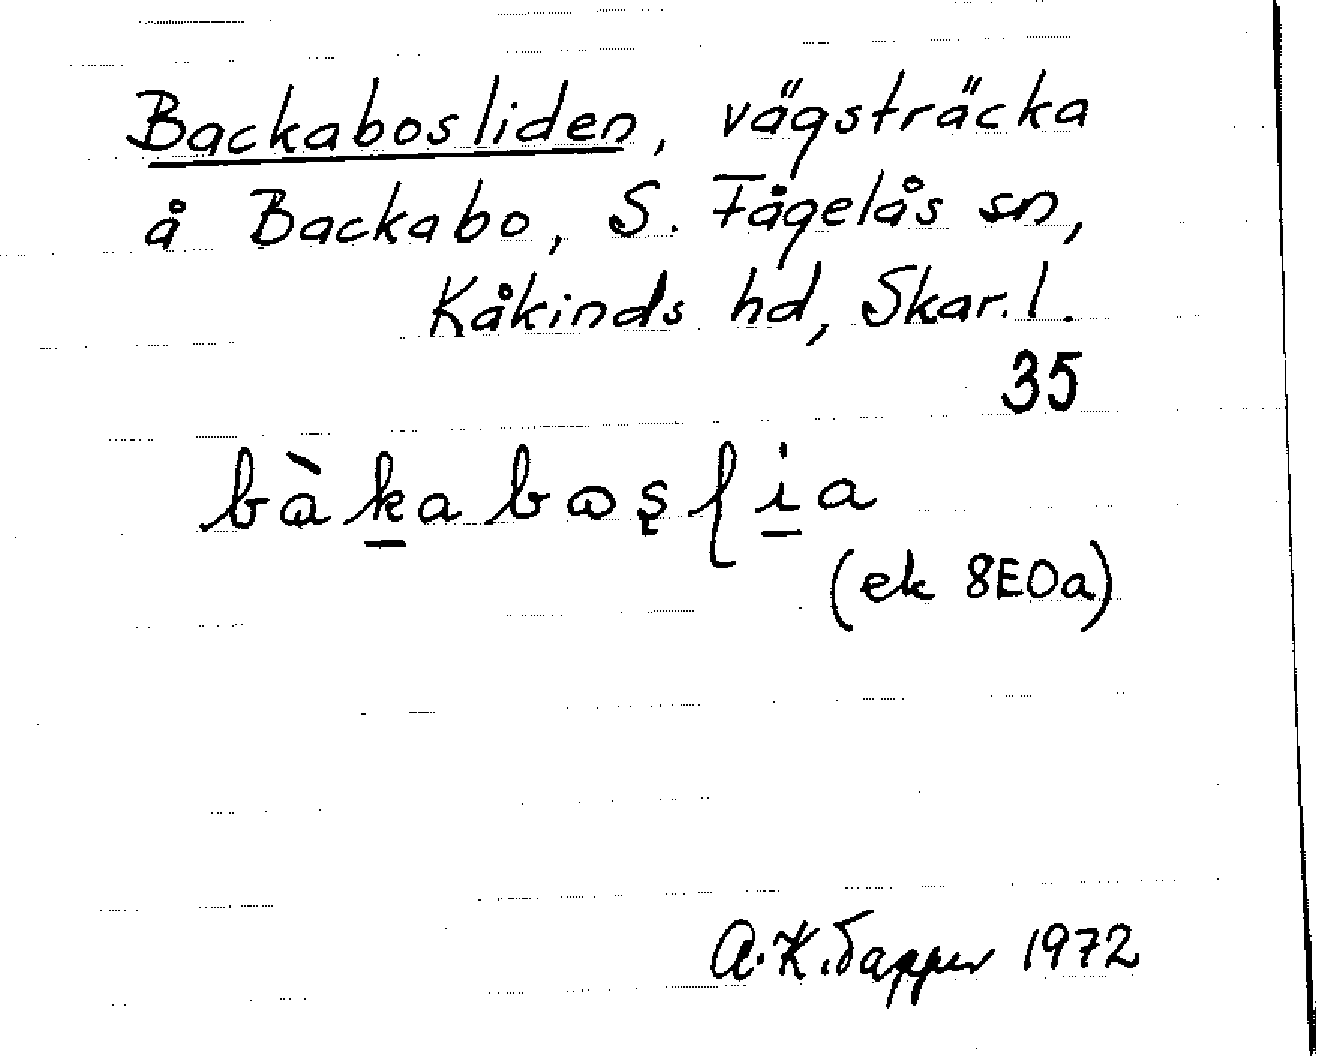 Backabosliden, vägsträcka
å Backabo, S. Fågelås sn,
Kåkinds hd, Skar. l.
35
bàkaboslia
(ek 8E0a)
A.K. Tapper 1972